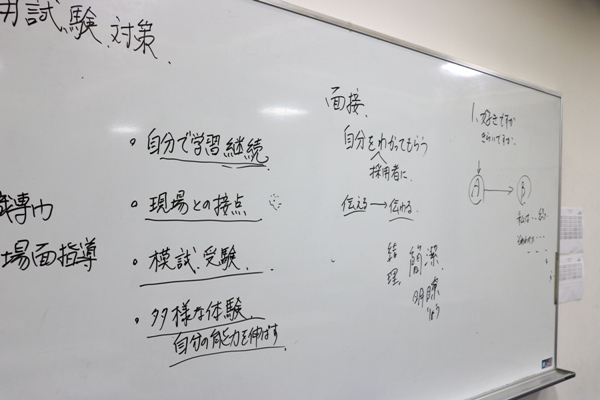 用試験対策
専門
場面指導
・自分で学習継続
・現場との接点
・模試、受験
・多様な体験
自分の能力を伸ばす
面接
自分をわかってもらう
採用者に
伝える→伝わる
結
理
簡潔
明瞭
1.好きですか
きらいですか
A → B